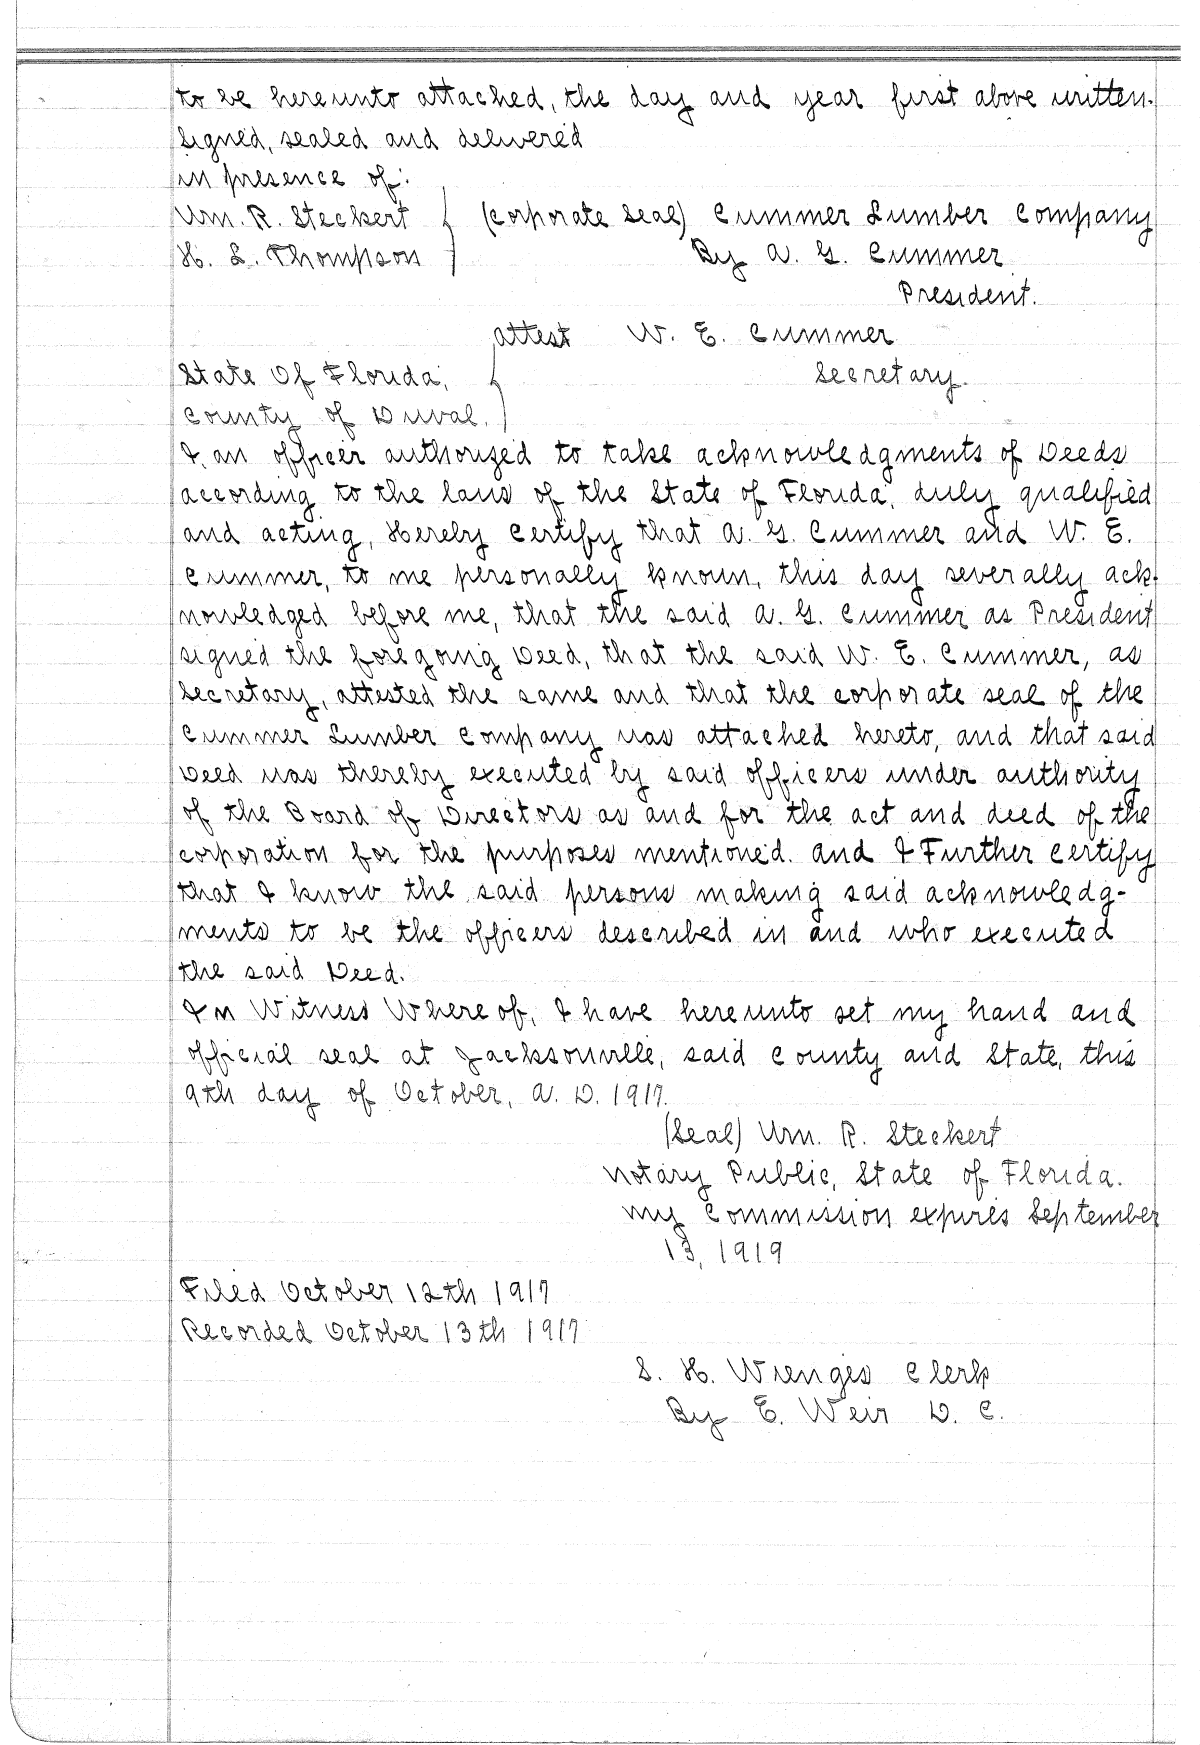 to be hereunto attached, the day and year first above written.
Signed, sealed and delivered
in presence of:
Wm. R. Steckert } (Corporate Seal) Cummer Lumber Company
H. L. Thompson } By A. G. Cummer
President.
attest W. E. Cummer
State Of Florida, } Secretary.
County of Duval. }
I, an officer authorized to take acknowledgments of Deeds
according to the laws of the State of Florida, duly qualified
and acting, Hereby Certify that A. G. Cummer and W. E.
Cummer, to me personally known, this day severally ack-
nowledged before me, that the said A. G. Cummer as President
signed the foregoing Deed, that the said W. E. Cummer, as
Secretary, attested the same and that the corporate seal of the
Cummer Lumber Company was attached hereto, and that said
Deed was thereby executed by said officers under authority
of the Board of Directors as and for the act and deed of the
corporation for the purposes mentioned. and I Further Certify
that I know the said persons making said acknowledg-
ments to be the officers described in and who executed
the said Deed.
In Witness Where of, I have hereunto set my hand and
official seal at Jacksonville, said County and State, this
9th day of October, A. D. 1917.
(Seal) Wm. R. Steckert
Notary Public, State of Florida.
My Commission expires September
13, 1919
Filed October 12th 1917
Recorded October 13th 1917
S. H. Wienges Clerk
By E. Weir D. C.